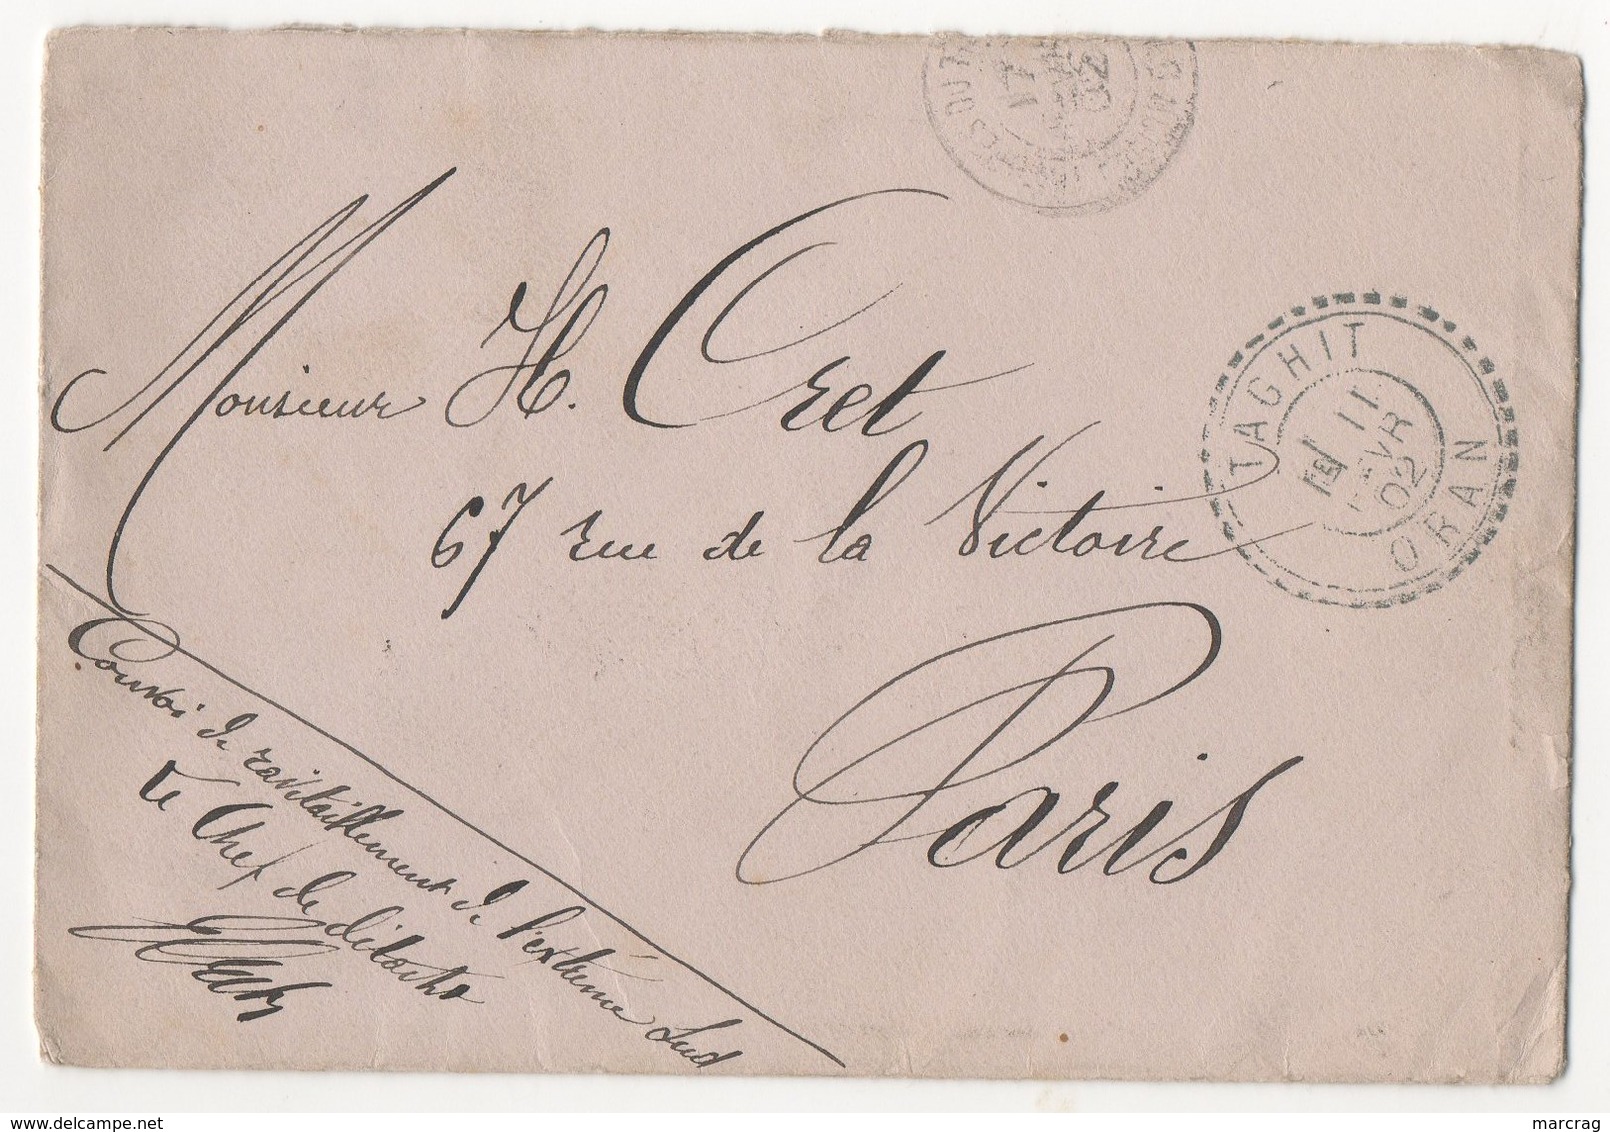 17
02
Monsieur H. Cret
67 rue de la Victoire
Paris
TAGHIT
11
FEVR
02
ORAN
Convoi de ravitaillement de l'extrême Sud
Le Chef de détacht
marcrag